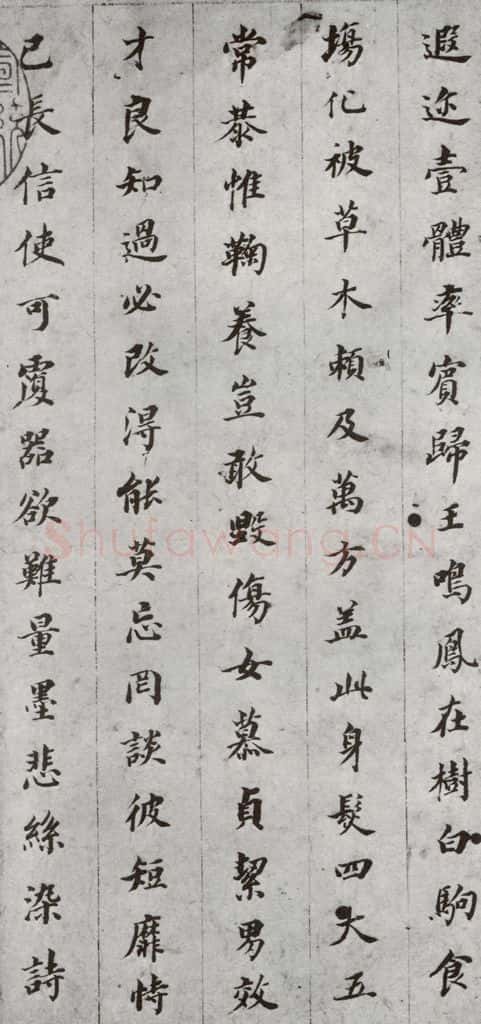 遐迩壹體率賓歸王鳴鳳在樹白駒食
塲化被草木頼及萬方盖此身髮四大五
常恭惟鞠養豈敢毀傷女慕貞絜男效
才良知過必改得能莫忘罔談彼短靡恃
己長信使可覆器欲難量墨悲絲染詩
Shufawang.CN